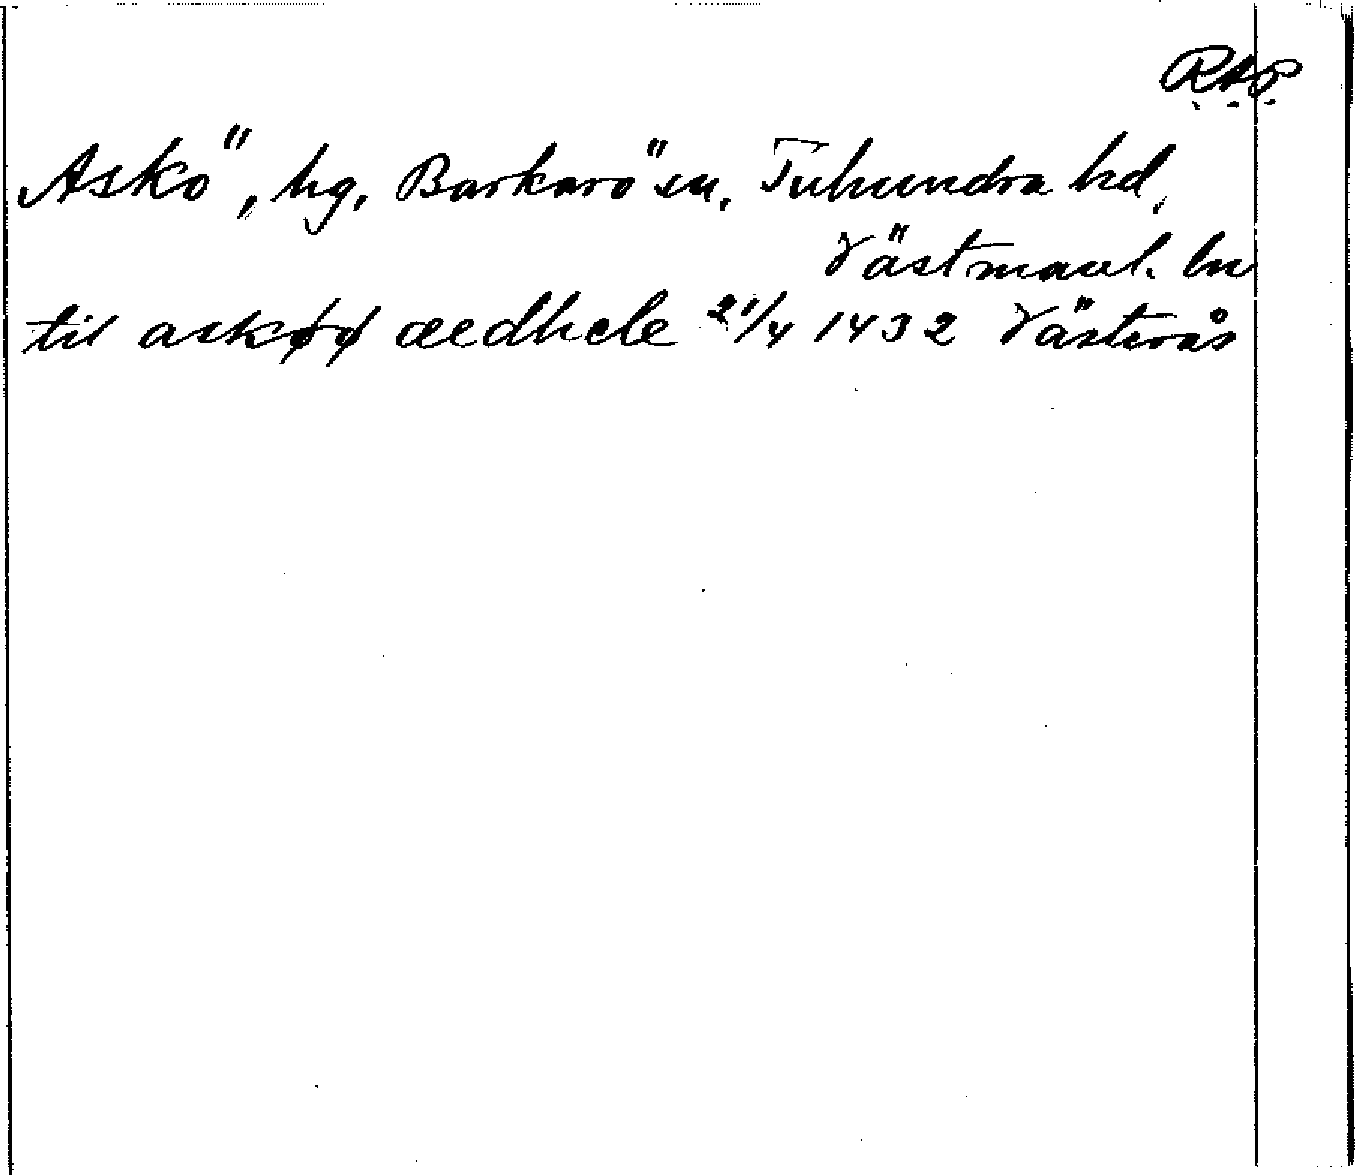 RAP
Askö, hg, Barkarö sn, Tuhundra hd,
Västmanl. ln
til askøø ædhele 21/4 1432 Västerås